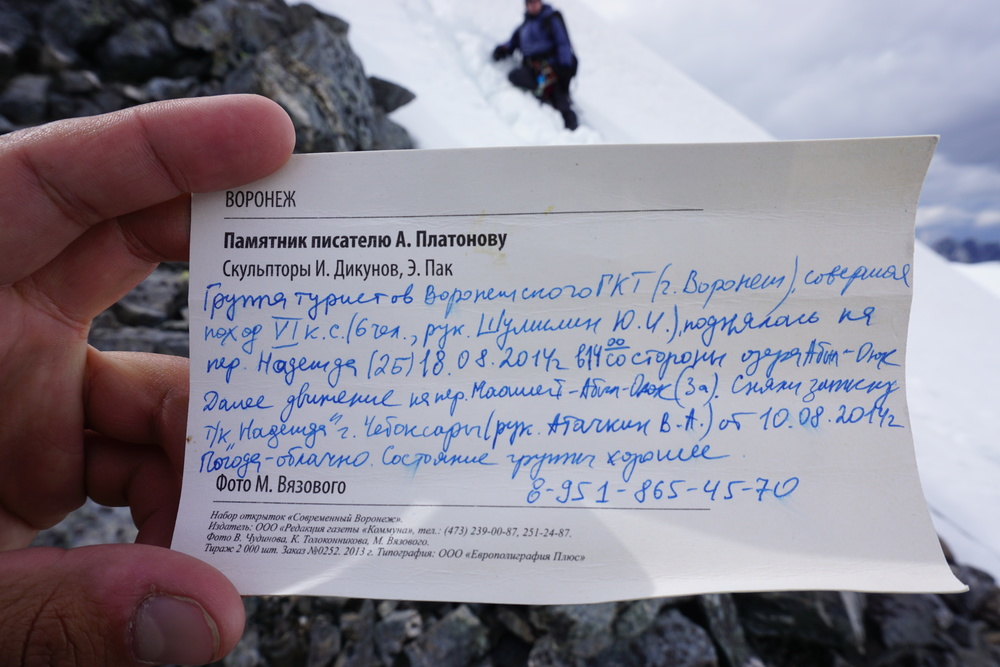 ВОРОНЕЖ
Памятник писателю А. Платонову
Скульпторы И. Дикунов, Э. Пак
Группа туристов Воронежского ГКТ (г. Воронеж), совершая
поход VI к.с. (6 чел., рук. Шулисмин Ю.И.), поднялась на
пер. Надежда (2Б) 18.08.2014г в 14 00 со стороны озера Абыл-Оюк
Далее движение на пер. Маашей-Абыл-Оюк (3а). Сняли записку
т/к "Надежда" г. Чебоксары (рук. Атачкин В.А.) от 10.08.2014г
Погода-облачно. Состояние группы хорошее
Фото М. Вязового
8-951-865-45-70
Набор открыток «Современный Воронеж».
Издатель: ООО «Редакция газеты «Коммуна», тел.: (473) 239-00-87, 251-24-87.
Фото В. Чудинова, К. Толоконникова, М. Вязового.
Тираж 2 000 шт. Заказ №0252. 2013 г. Типография: ООО «Европолиграфия Плюс»